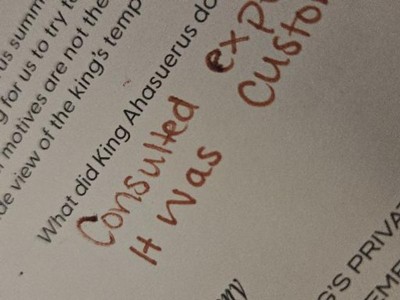 us summ
g for us to try t
motives are not the
de view of the king's temp
What did King Ahasuerus do
Consulted exp
It was custo
'S PRIVAT
EME